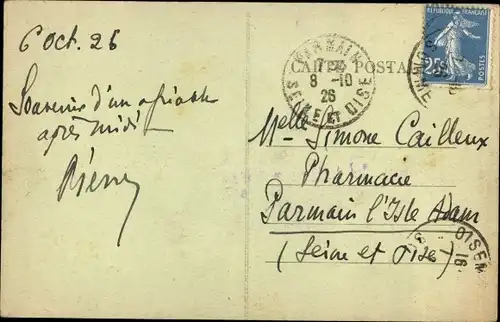 6 Oct. 26
Souvenir d'un agréable
après midi
Pierre
CARTE POSTALE
PARMAIN
8 - 10
26
SEINE ET OISE
REPUBLIQUE FRANÇAISE
25c
POSTES
Melle Simone Cailleux
Pharmacie
Parmain l'Isle Adam
(Seine et Oise)